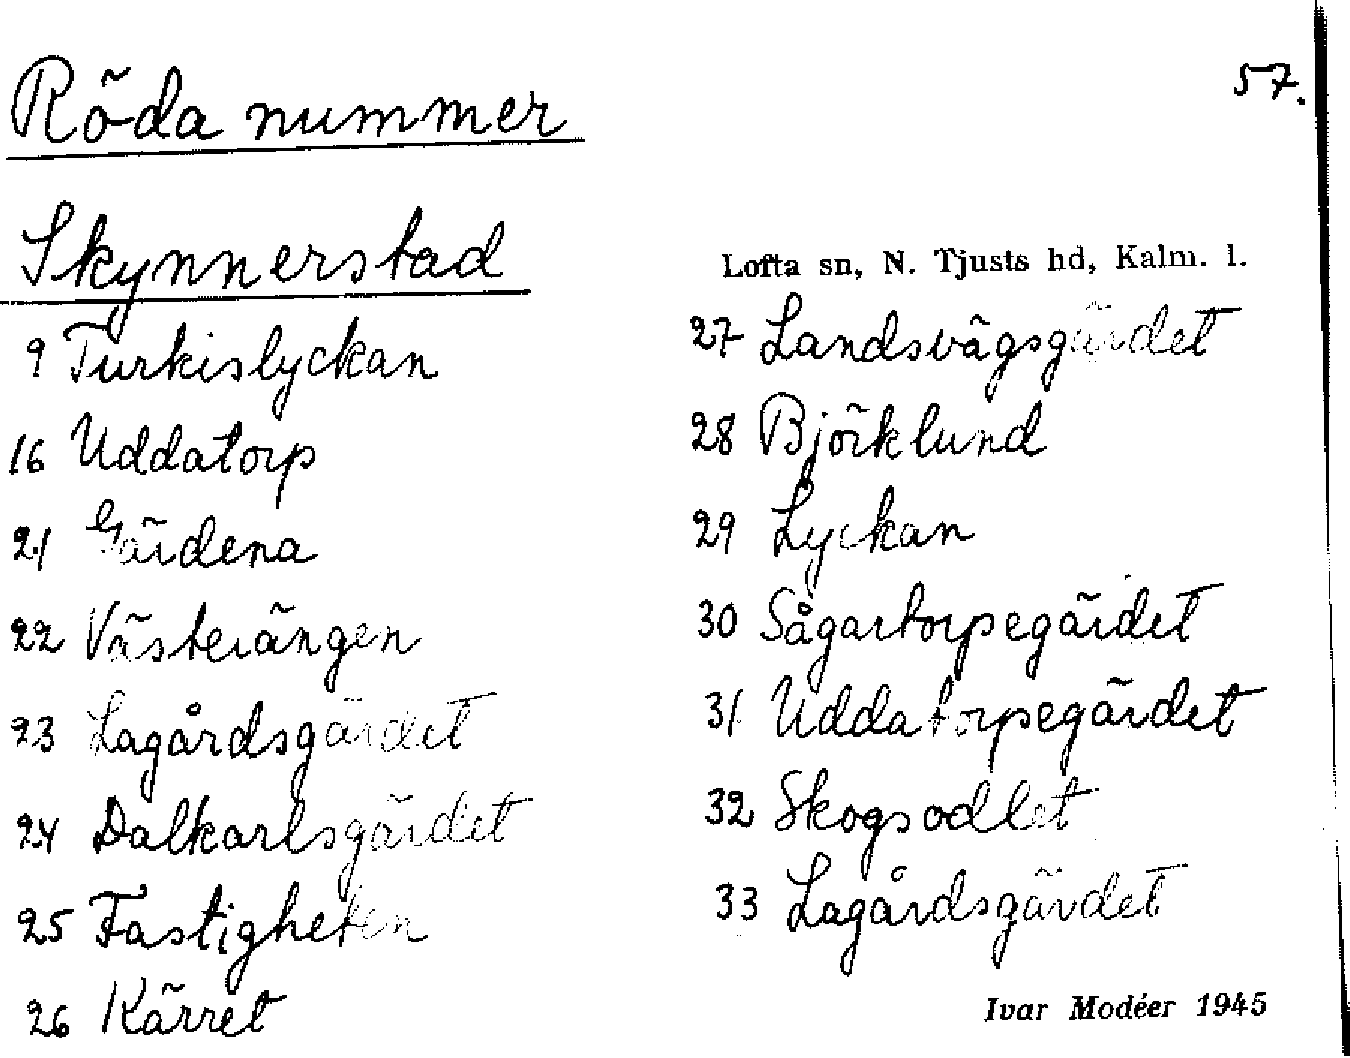 57.
Röda nummer
Skynnerstad
Lofta sn, N. Tjusts hd, Kalm. l.
9 Turkislyckan
16 Uddatorp
21 Gärdena
22 Västerängen
23 Lagårdsgärdet
24 Dalkarlsgärdet
25 Fastigheten
26 Kärret
27 Landsvägsgärdet
28 Björklund
29 Lyckan
30 Sågartorpegärdet
31 Uddatorpegärdet
32 Skogsodlet
33 Lagårdsgärdet
Ivar Modéer 1945